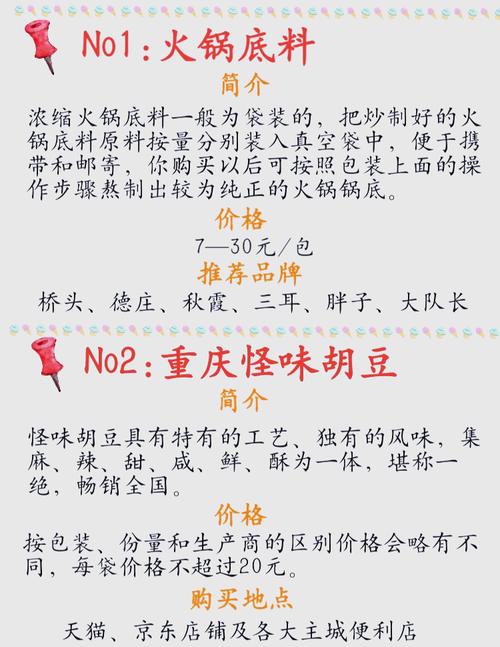 No1:火锅底料
简介
浓缩火锅底料一般为袋装的，把炒制好的火
锅底料原料按量分别装入真空袋中，便于携
带和邮寄，你购买以后可按照包装上面的操
作步骤熬制出较为纯正的火锅锅底。
价格
7—30元/包
推荐品牌
桥头、德庄、秋霞、三耳、胖子、大队长
No2:重庆怪味胡豆
简介
怪味胡豆具有特有的工艺、独有的风味，集
麻、辣、甜、咸、鲜、酥为一体，堪称一
绝，畅销全国。
价格
按包装、份量和生产商的区别价格会略有不
同，每袋价格不超过20元。
购买地点
天猫、京东店铺及各大主城便利店